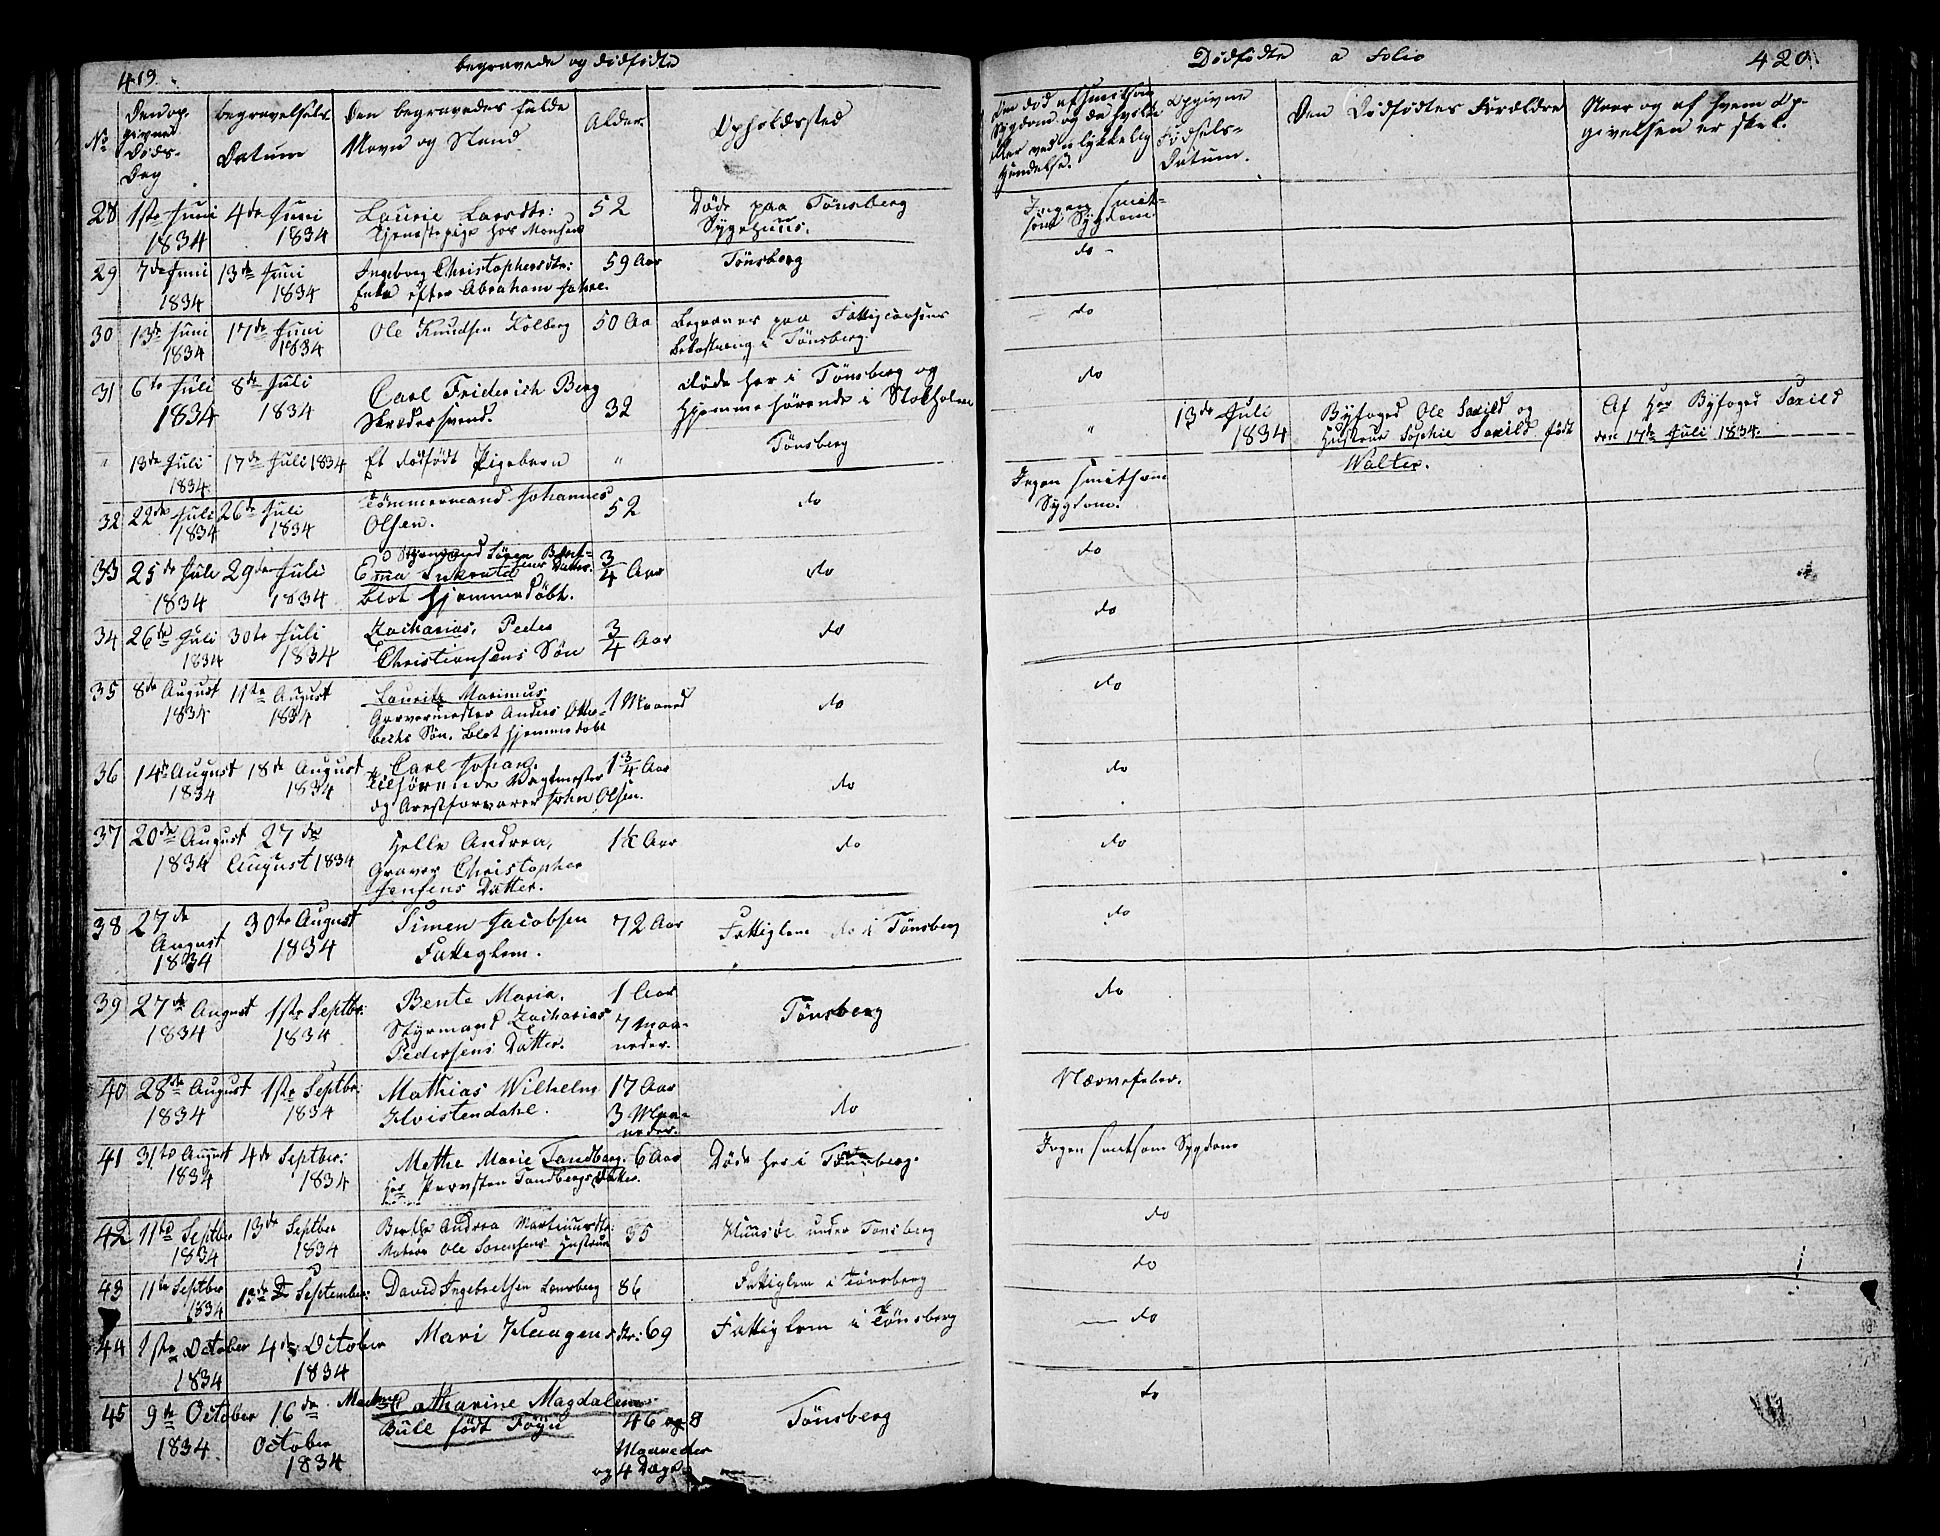 419.
begravede og dødfødte
No
Den op-
givne
Døds-
Dag
begravelsels
Datum
Den begravedes fulde
Navn og Stand.
Alder
Opholdssted
28
1ste Juni
1834
4de Juni
1834
Laurie Larsdtr:
Tjenestepige hos Monsen
52
Døde paa Tønsberg
Sygehuus.
29
7de Juni
1834
13de Juni
1834
Ingeborg Christophersdtr:
Enke efter Abraham
59 Aar
Tønsberg
30
13de Juni
1834
17de Juni
1834
Ole Knudsen Kolberg
50 Aar
Begraves paa Fattigcassens
Bekostning i Tønsberg.
31
6te Juli
1834
8de Juli
1834
Carl Friderich Berg
Skrædersvend.
32
døde her i Tønsberg og
hjemmehørende i Stokholm
"
13de Juli
1834
17de Juli 1834
Et dødfødt Pigebarn
"
Tønsberg
32
22de Juli
1834
26de Juli
1834
Tømmermand Johannes
Olsen.
52
do
33
25de Juli
1834
29de Juli
1834
Styrmand Søren Bent-
sens Datter.
Ema
blot hjemmedøbt.
3/4 Aar
do
34
26de Juli
1834
30te Juli
1834
Zacharias, Peder
Christiansens Søn
3/4 Aar
do
35
8de August
1834
11te August
1834
Lauritz Marinus
Garvermester Anders Otter-
bechs Søn. blot hjemmedøbt
1 Maaned
do
36
14de August
1834
18de August
1834
Carl Johan,
tilhørende Vagtmester
og Arestforvarer John Olsen.
1 3/4 Aar
do
37
20de August
1834
27de
August 1834
Helle Andrea,
Graver Christopher
Jensens Datter.
1½ Aar
do
38
27de
August
1834
30te August
1834
Simen Jacobsen
Fattiglem.
72 Aar
Fattiglem do i Tønsberg
39
27de August
1834
1ste Septbr:
1834
Bente Maria,
Styrmand Zacharias
Pedersens Datter.
1 Aar
7 Maa-
neder.
Tønsberg
40
28de August
1834
1ste Septbr.
1834
Mathias Wilhelm
Qvistendahl.
17 Aar
3 Maa-
neder.
do
41
31te August
1834
4de Septbr:
1834
Methe Marie Tandberg.
Hr Provsten Tandbergs Datter.
6 Aar
Døde her i Tønsberg.
42
11te Septbr
1834
13de Septbr
1834
Berthe Andrea Martinusdtr:
Matros Ole Sørensens Hustrue
35
Huusøe under Tønsberg
43
11te Septbr
1834
13de September:
David Ingebretsen Lensberg
86
Fattiglem i Tønsberg
44
1ste October
1834
4de October
1834
Mari Haagensdtr:
69
Fattiglem i Tønsberg
45
9de October
1834.
16de
October
1834
Madame Catharine Magdalene
Bull født Føyn
46 og 8
Maaneder
og 4 Dage
Tønsberg
Dødfødte a folio
420.
Om død af smitsom
Sygdom og da hvilken
eller ved ulykkelig
Hændelse.
Opgivne
Fødsels-
Datum.
Den Dødfødtes Forældre
Naar og af hvem Op-
givelsen er skeet.
Ingen smit-
som Sygdom.
do
do
do
"
13de Juli
1834
Byfoged Ole Saxild og
Hustrue Sophie Saxild født
Walter.
Af Hr Byfoged Saxild
den 17de Juli 1834.
Ingen smitsom
Sygdom.
do
do
do
do
do
do
do
Nærvefeber.
Ingen smitsom Sygdom
do
do
do
do